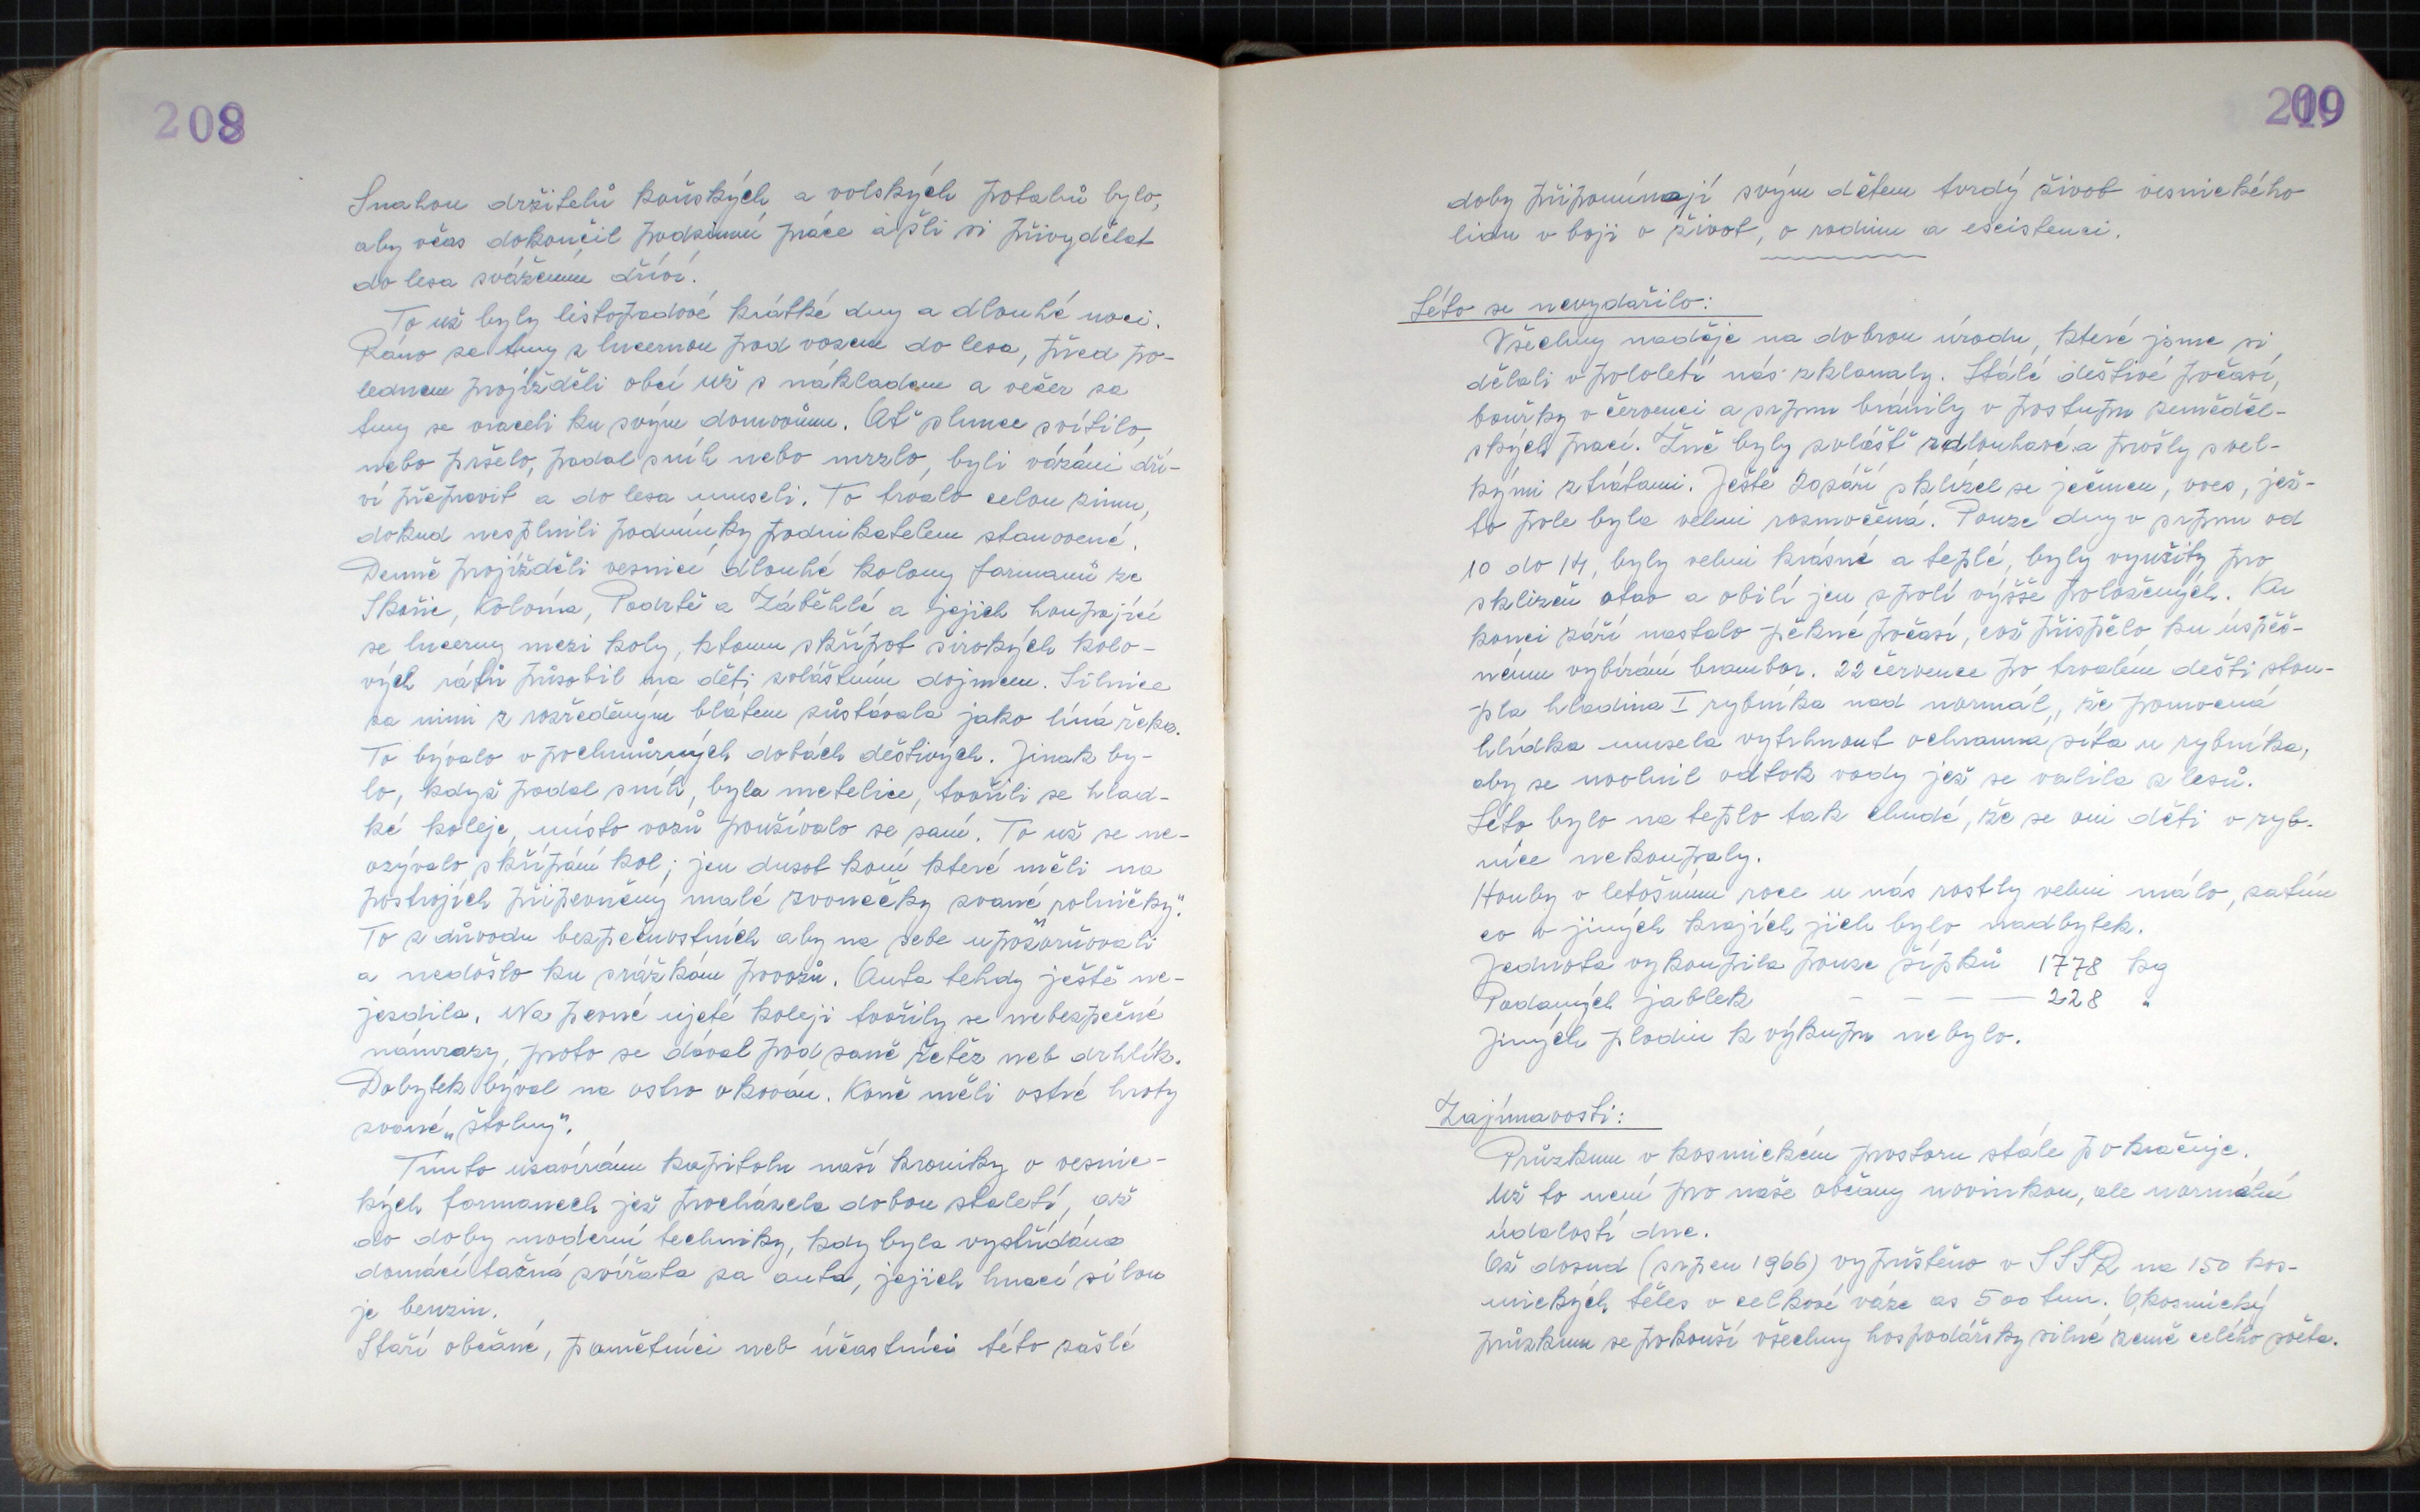 208
Snahou držitelů koňských a volských potahů bylo,
aby včas dokončil podzimní práce a šli si přivydělat
do lesa svážením dříví.
To už byly listopadové krátké dny a dlouhé noci.
Ráno ze tmy s lucernou pod vozem do lesa, před po-
lednem projížděli obcí už s nákladem a večer za
tmy se vraceli ku svým domovům. Ať slunce svítilo,
nebo pršelo, padal sníh nebo mrzlo, byli vázáni dří-
ví přepravit a do lesa museli. To trvalo celou zimu,
dokud nesplnili podmínky podnikatelem stanovené.
Denně projížděli vesnicí dlouhé kolony formanů ze
Skořic, Kolvína, Padrtě a Záběhlé a jejich houpající
se lucerny mezi koly, ktomu skřípot širokých kolo-
vých ráfů působil na děti zvláštním dojmem. Silnice
za nimi z rozředěným blátem zůstávala jako líná řeka.
To bývalo v pochmůrných dobách deštivých. Jinak by-
lo, když padal sníh, byla metelice, tvořili se hlad-
ké koleje, místo vozů používalo se saní. To už se ne-
ozývalo skřípání kol; jen dusot koní které měli na
postrojích připevněny malé zvonečky zvané „rolničky".
To z důvodu bezpečnostních aby na sebe upozorňovali
a nedošlo ku srážkám povozů. Auta tehdy ještě ne-
jezdila. Na pevné ujeté koleji tvořily se nebezpečné
námrazy, proto se dával pod saně řetěz neb drhlík.
Dobytek býval na ostro okován. Koně měli ostré hroty
zvané „štolny".
Tímto uzavírám kapitolu naší kroniky o vesnic-
kých formanech jež procházela dobou staletí, až
do doby moderní techniky, kdy byla vystřídána
domácí tažná zvířata za auta, jejich hnací silou
je benzin.
Staří občané, pamětníci neb účastníci této zašlé
209
doby připomínají svým dětem tvrdý život vesnického
lidu v boji o život, o rodinu a escistenci.
Léto se nevydařilo:
Všechny naděje na dobrou úrodu, které jsme si
dělali v pololetí nás zklamaly. Stálé deštivé počasí,
bouřky v červenci a srpnu bránily v postupu zeměděl-
ských prací. Žně byly zvlášť zdlouhavé a prošly s vel-
kými ztrátami. Ještě 20 září sklízel se ječmen, oves, jež-
to pole byla velmi rozmočená. Pouze dny v srpnu od
10 do 14, byly velmi krásné a teplé, byly využity pro
sklizeň otav a obilí jen z polí výšše položených. Ku
konci září nastalo pěkné počasí, což přispělo ku úspěš-
nému vybírání brambor. 22 července po trvalém dešti stou-
pla hladina I rybníka nad normál, že pomocná
hlídka musela vytrhnout ochranna síta u rybníka,
aby se uvolnil odtok vody jež se valila z lesů.
Léto bylo na teplo tak chudé, že se ani děti v ryb-
níce nekoupaly.
Houby v letošním roce u nás rostly velmi málo, zatím
co v jiných krajích jich bylo nadbytek.
Jednota vykoupila pouze šípků 1778 kg
Padaných jablek — — — — 228 „
Jiných plodin k výkupu nebylo.
Zajímavosti:
Průzkum v kosmickém prostoru stále pokračuje.
Už to není pro naše občany novinkou, ale normální
událostí dne.
Až dosud (srpen 1966) vypuštěno v SSSR na 150 kos-
mických těles v celkové váze as 500 tun. O kosmický
průzkum se pokouší všechny hospodářsky silné země celého světa.